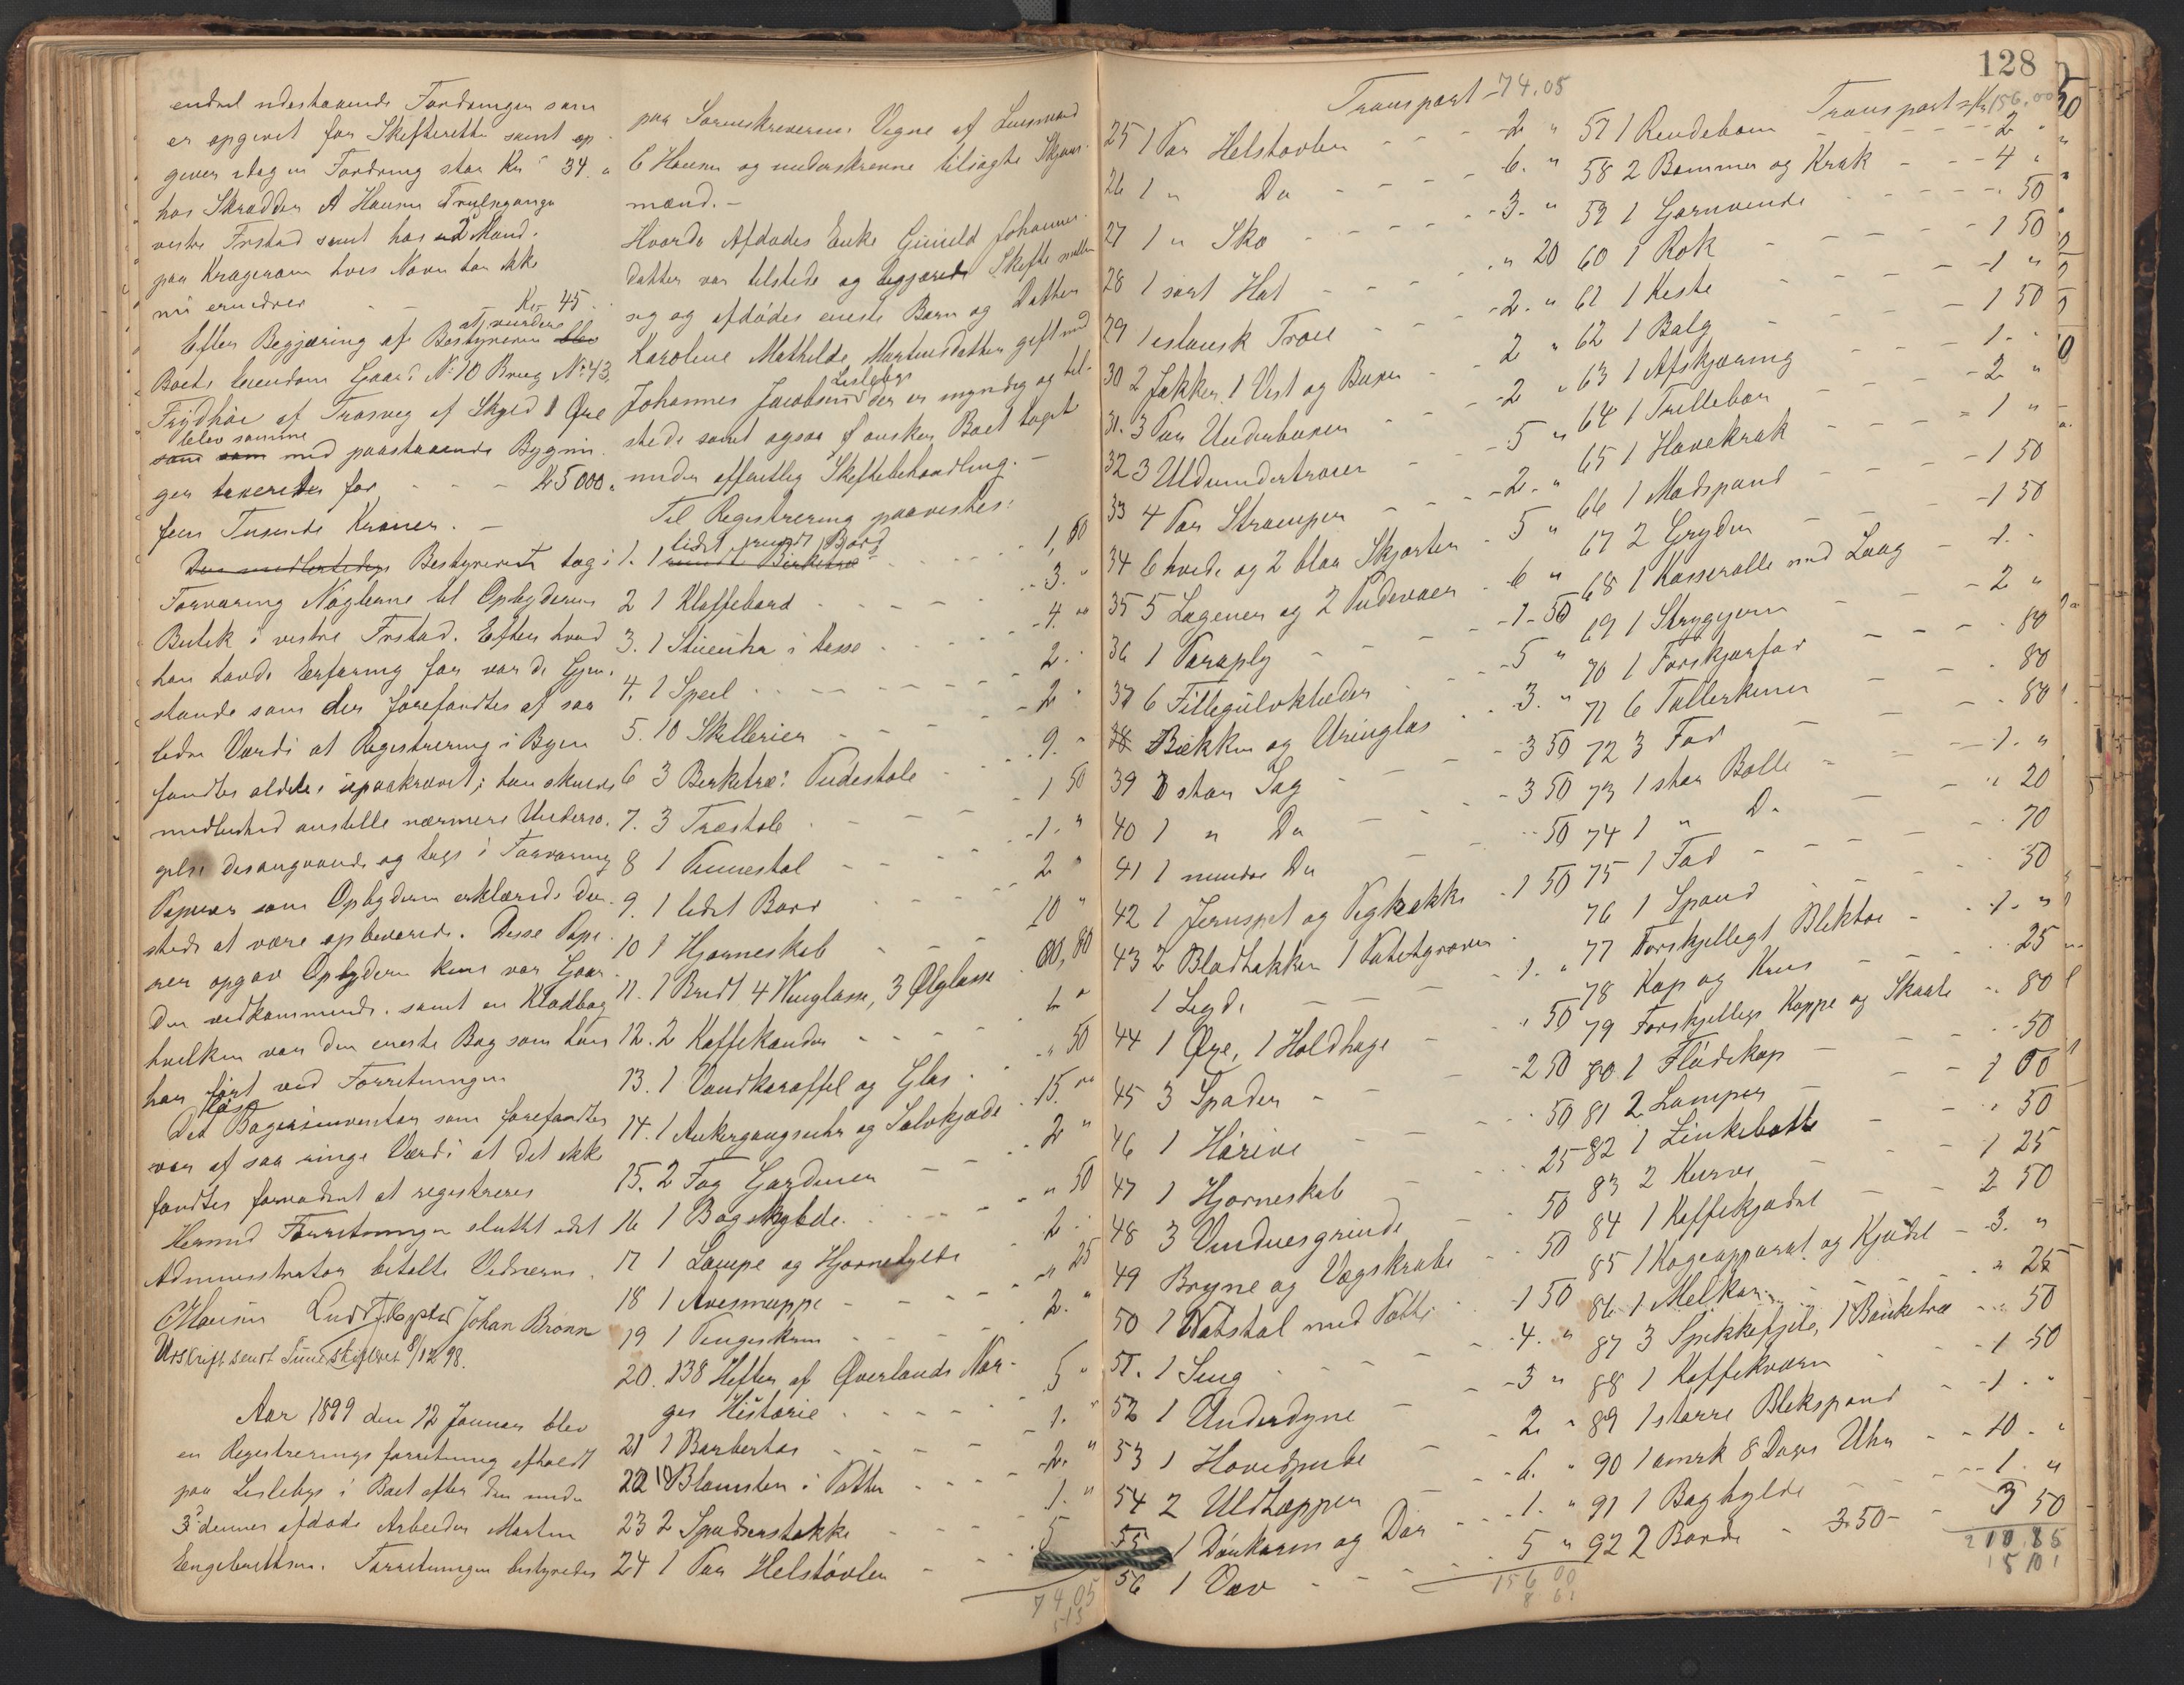 endel udestaaende Fordringer som
er opgivet for Skifteretten samt op
giver idag en Fordring stor Kr 34 "
hos Skrædder A Hansen
vestre Frstad samt hos 2 Mænd
paa Kragerøen hvis Navn han ikke
nu erindrer - - Kr 45
Efter Begjæring af Bestyreren at vurdere
Boets Eiendom Gaard No 10 Brug No 43,
Frydhøi af Trosvig af Skyld 1 Øre
blev samme med paastaaende Bygnin
ger taxeret for - - - Kr 5000 "
fem Tusende Kroner. -
Bestyreren tog i
Forvaring Nøglerne til Opbyderens
Butik i vestre Frstad. Efter hvad
han havde Erfaring for var de Gjen
stande som der forefandtes af saa
liden Værdi at Registrering i Byen
fandtes aldeles upaakrævet; han skulde
midlertid anstille nærmere Undersø
gelse desangaaende og tage i Forvaring
Papirer som Opbyderen erklærede der
steds at være opbevarede. Disse Papi
rer opgav Opbyderen kuns var Gaar
den vedkommende. samt en Kladbog
hvilken var den eneste Bog som han
har ført ved Forretningen
Det løse Bageriinventar som forefandtes
var af saa ringe Værdi at det ikke
fandtes fornødent at registreres
Hermed Forretningen sluttet idet
Administrator betalte Vidnerne.
CHansen Johan Bronn
Udskrift sendt 8/12 98.
Aar 1899 den 12 Januar blev
en Registreringsforretning afholdt
paa Lisleby i Boet efter den under
3 dennes afdøde Arbeider Martin
Engebretsen. Forretningen bestyredes
paa Sorenskriverens Vegne af Lensmand
C Hansen og underskrevne tilsagte Skjøns
mænd. -
Hvorda Afdødes Enke Gunild Johannes
datter var tilstede og begjærede Skifte mellem
sig og afdødes eneste Barn og Datter
Karoline Mathilde Martinsdatter gift med
Johannes Jacobsen Lisleby der er myndig og til
stede samt ogsaa ønsker Boet taget
under offentlig Skiftebehandling. -
Til Registrering paavistes:
1. 1 lidet rundt Bord 1,50
2 1 Klaffebord - - - 3. "
3. 1 Stueuhr i Kasse - - 4. "
4. 1 Speil - - - 2. "
5. 10 Skillerier - - - 2 "
6 3 Birketræ: Pudestole - 9. "
7. 3 Træstole - - - 1 50
8 1 Pinnestol - - - 1. "
9. 1 lidet Bord - - - 2 "
10 1 Hjørneskab - - - 10 "
11. 1 Bredt 4 Vinglasse, 3 Ølglasse 00,80
12. 2 Kaffekander - - -
13. 1 Vandkaraffel og Glas - " 50
14. 1 Ankergangsuhr og Sølvkjæde 15. "
15. 2 Fag Gardiner - - 2 "
16 1 Boghylde - - - " 50
17 1 Lampe og Hjørnehylde 2. "
18 1 Avismappe - - - " 25
19 1 Pengeskrin - - - 2. "
20. 138 Hefter af Øverlands Nor-
ges Historie - - - 5 "
21 1 Barbertøi - - - 1. "
22 10 Blomster i Potter - - 2. "
23 2 Spadserstokke - - 1. "
24 1 Par Helstøvler - 5
74 05
Transport - 74.05
25 1 Par Helstøvler - - - 2 "
26 1 " Do - - - 6. "
27 1 " Sko - - - 3. "
28 1 sort Hat - - - " 20
29 1 islansk Trøie - - 2. "
30 2 Jakker, 1 Vest og Buxer - 2 "
31. 3 Par Underbuxer - - 2 "
32 3 Uldundertrøier - - 5 "
33 4 Par Strømper - - 2. "
34 6 hvide og 2 blaa Skjorter - 5 "
35 5 Lagener og 2 Pudevaer - 6 "
36 1 Paraply - - - 1 - 50
37 6 Fillegulvklæder - - 5 "
38 Bækken og Uringlas - 3. "
39 1 stor Sag - - - 3 50
40 1 " Do - - - 3 50
41 1 mindre Do - - - 50
42 1 Jernspet og Vighakke - 1 50
43 2 Bladhakker 1 Potetgraver
1 Ligd. - - - 1. "
44 1 Øxe, 1 Holdhage - - " 50
45 3 Spader - - - 2 50
46 1 Hørive - - - 50
47 1 Hjørneskab - - - 25
48 3 Vinduesgrinde - - 50
49 Bryne og Vægskrabe - - 50
50 1 Natstol med Potte - - 1 50
51. 1 Seng - - - 4. "
52 1 Underdyne - - - 3 "
53 1 Hovedpude - - - 2 "
54 2 Uldtæpper - - - 6. "
55 1 Dunkasen og Dør - - 1. "
56 1 Væv - - - 5 "
156 00
128
Transport = Kr 156.00
57 1 Rendebom - - - 2 "
58 2 Bommer og Krak - - 4 "
59 1 Garnvinde - - - 50
60 1 Rok - - - 1 50
61 1 Kiste - - - 1 "
62 1 Balg - - - 1 50
63 1 Afskjæring - - - 1. "
64 1 Trillebør - - - 2 "
65 1 Havekrak - - - 1 "
66 1 Madspand - - - 1 50
67 2 Gryder - - - 1 50
68 1 Kasserolle med Laag - 1. "
69 1 Strygejern - - - 2 "
70 1 Forskjærfad - - - 80
71 6 Tallerkener - - - 80
72 3 Fad - - - 80
73 1 stor Bolle - - - 1. "
74 1 " Do - - - " 20
75 1 Fad - - - 70
76 1 Spand - - - 50
77 Forskjelligt Bliktøi - - 1. "
78 Kop og Krus - - - 25
79 Forskjellige Koppe og Skaale - 80
80 1 Flødekop - - - 50
81 2 Lamper - - - 1 00
82 1 Zinkebøtte - - - " 50
83 2 Kurve - - - 1 25
84 1 Kaffekjædel - - - 2 50
85 1 Kogeapparat og Kjædel - 3. "
86 1 Melkar - - - " 25
87 3 Spikkefjele, 1 Banketræ - " 50
88 1 Kaffekværn - - - 1 50
89 1 større Blikspand - - 1. "
90 1 amrk 8 Dages Uhr - - 10. "
91 1 Boghylde - - - 1. "
92 2 Borde - 3.50 - 3 50
210,85